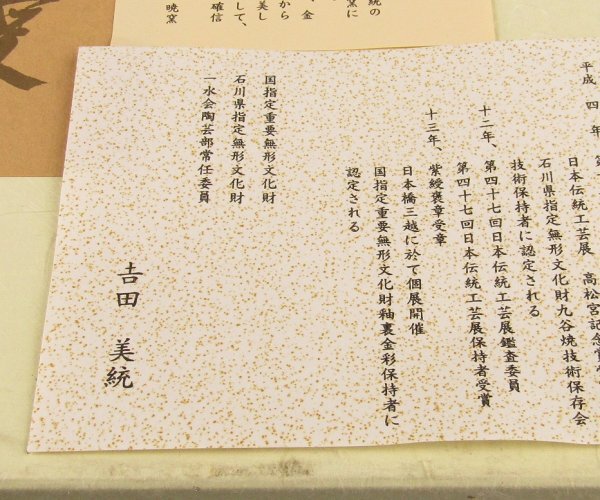 統の
窯に
金
から
美し
して、
確信
暁窯
平成 四 年
日本伝統工芸展 高松宮記念賞
石川県指定無形文化財九谷焼技術保存会
技術保持者に認定される
十二年、第四十七回日本伝統工芸展鑑査委員
第四十七回日本伝統工芸展保持者受賞
十三年、紫綬褒章受章
日本橋三越に於て個展開催
国指定重要無形文化財釉裏金彩保持者に
認定される
国指定重要無形文化財
石川県指定無形文化財
一水会陶芸部常任委員
𠮷田 美統